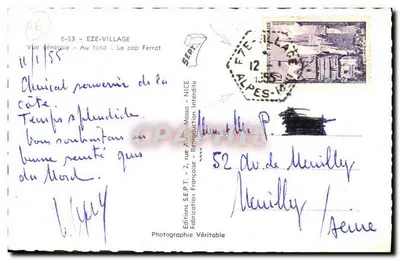 6-33 - EZE-VILLAGE
Vue générale - Au fond : Le cap Ferrat
11/1/55
Amical souvenir de la
côte.
Temps splendide
Vous souhaitons
bonne santé
du Nord.
EZE-VILLAGE
12
1
55
ALPES-
SEPT
Editions S.E.P.T. - 2, rue A.-Masse - NICE
Fabrication Française - Reproduction Interdite
P.
52 Av. de Neuilly
Neuilly / Seine
Photographie Véritable